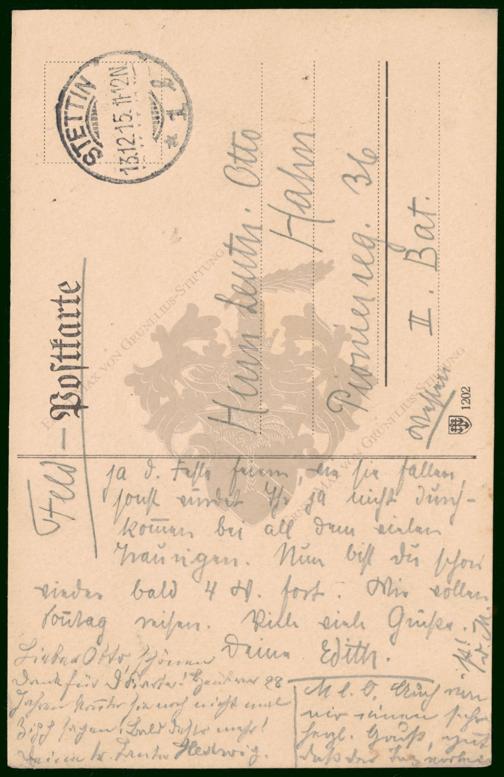 STETTIN
13.12.15. 11-12N
* 1 p
Feld - Postkarte
Herrn Leutn. Otto
Hahn
Pionierreg. 36
II. Bat.
Westen
1202
MAX VON GRUNELIUS-STIFTUNG
ja d. Feste feiern wie sie fallen
sonst würdet Ihr ja nicht durch-
kommen bei all dem vielen
Traurigen. Nun bist du schon
wieder bald 4 W. fort. Wir wollen
Sonntag reisen. Viele viele Grüße.
Deine Edith.
Lieber Otto, schönen
Dank für D. Karte!
Jahren noch nicht mal
sagen. Bald mehr!
Deine tr. Tante Hedwig.
M. l. O. Auch von
mir einen sehr
herzl. Gruß,
daß der